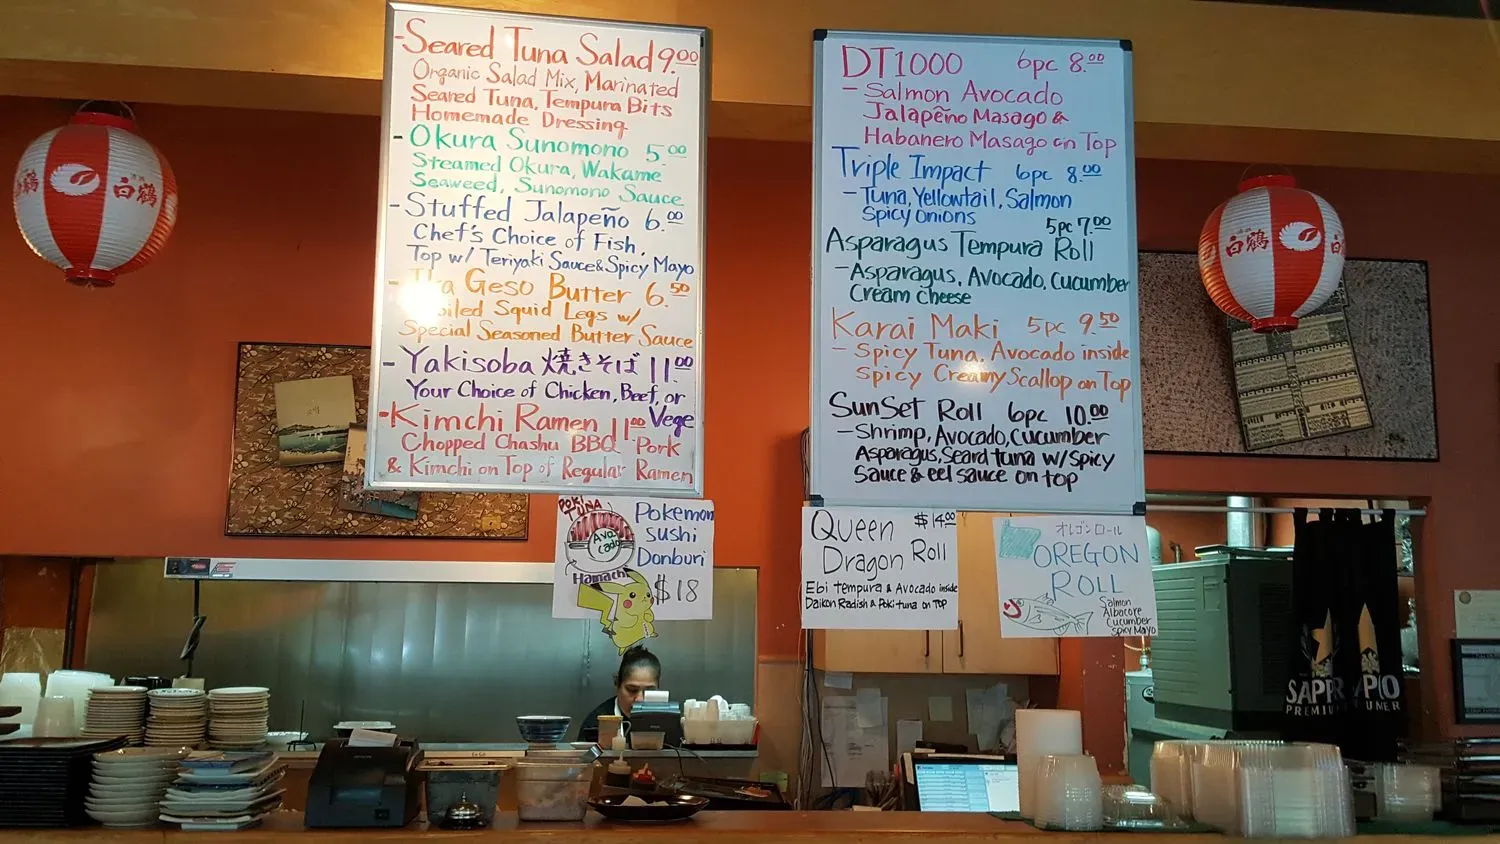 -Seared Tuna Salad 9.00
Organic Salad Mix, Marinated
Seared Tuna, Tempura Bits
Homemade Dressing
- Okura Sunomono 5.00
Steamed Okura, Wakame
Seaweed, Sunomono Sauce
- Stuffed Jalapeño 6.00
Chef's Choice of Fish,
Top w/ Teriyaki Sauce & Spicy Mayo
- Geso Butter 6.50
Squid Legs w/
Special Seasoned Butter Sauce
- Yakisoba 焼きそば 11.00
Your Choice of Chicken, Beef, or
Vege
- Kimchi Ramen 11.00
Chopped Chashu BBQ Pork
& Kimchi on Top of Regular Ramen
DT1000 6pc 8.00
- Salmon Avocado
Jalapeño Masago &
Habanero Masago on Top
Triple Impact 6pc 8.00
- Tuna, Yellowtail, Salmon
Spicy onions
5pc 7.00
Asparagus Tempura Roll
- Asparagus, Avocado, Cucumber
Cream cheese
Karai Maki 5pc 9.50
- Spicy Tuna, Avocado inside
Spicy Creamy Scallop on Top
SunSet Roll 6pc 10.00
- Shrimp, Avocado, Cucumber
Asparagus, Seard tuna w/ Spicy
Sauce & eel sauce on top
POKI TUNA
Avo
cado
Hamachi
Pokemon
Sushi
Donburi
$18
Queen $14.00
Dragon Roll
Ebi tempura & Avocado inside
Daikon Radish & Poki tuna on Top
オレゴンロール
OREGON
ROLL
Salmon
Albacore
Cucumber
Spicy Mayo
白鶴
白鶴
SAPPORO
PREMIUM